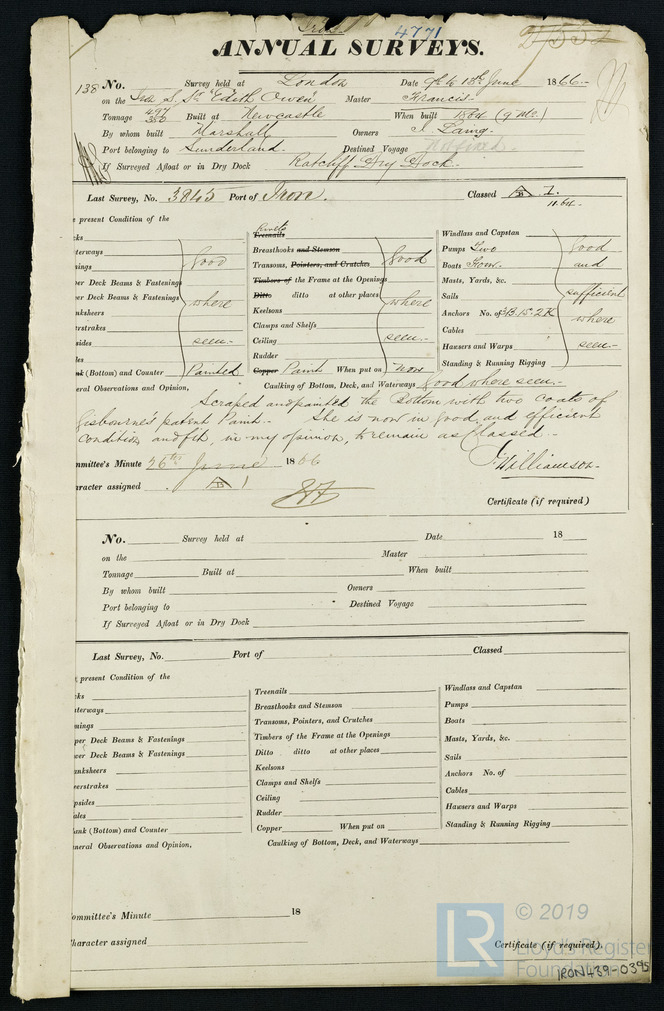 Iron 4771
ANNUAL SURVEYS.
138 No. Survey held at London Date 9th to 18th June 1866.-
on the Iron S. Str "Edith Owen" Master Francis
Tonnage 497 Built at Newcastle When built 1864 (9 Mo.)
By whom built Marshall Owners I. Laing.
Port belonging to Sunderland. Destined Voyage
If Surveyed Afloat or in Dry Dock Ratcliff Dry Dock.
Last Survey, No. 3843 Port of Iron. Classed A B 1.
11.64.
e present Condition of the
cks
terways
nings
per Deck Beams & Fastenings
wer Deck Beams & Fastenings
nksheers
erstrakes
sides
nk (Bottom) and Counter Painted
good
where
seen.-
Rivets
Treenails
Breasthooks and Stemson
Transoms, Pointers, and Crutches
Timbers of the Frame at the Openings
Ditto ditto at other places
Keelsons
Clamps and Shelfs
Ceiling
Rudder
Copper Paint When put on now
good
where
seen.-
Windlass and Capstan
Pumps Two
Boats Four
Masts, Yards, &c.
Sails
Anchors No. of 3B.1S.2K
Cables
Hawsers and Warps
Standing & Running Rigging
good
and
sufficient
where
seen.-
eral Observations and Opinion, Caulking of Bottom, Deck, and Waterways Good where seen.-
Scraped and painted the Bottom with two coats of
Gisbourne's patent Paint.- She is now in good and efficient
condition and fit, in my opinion, to remain as Classed.-
J. Williamson.
mmittee's Minute 26th June 1866
aracter assigned A B 1
Certificate (if required)
No. Survey held at Date 18
on the Master
Tonnage Built at When built
By whom built Owners
Port belonging to Destined Voyage
If Surveyed Afloat or in Dry Dock
Last Survey, No. Port of Classed
e present Condition of the
cks
terways
nings
per Deck Beams & Fastenings
wer Deck Beams & Fastenings
anksheers
eerstrakes
psides
ales
ank (Bottom) and Counter
Treenails
Breasthooks and Stemson
Transoms, Pointers, and Crutches
Timbers of the Frame at the Openings
Ditto ditto at other places
Keelsons
Clamps and Shelfs
Ceiling
Rudder
Copper When put on
Windlass and Capstan
Pumps
Boats
Masts, Yards, &c.
Sails
Anchors No. of
Cables
Hawsers and Warps
Standing & Running Rigging
eneral Observations and Opinion, Caulking of Bottom, Deck, and Waterways
ommittee's Minute 18
haracter assigned
Certificate (if required).
LR © 2019
Lloyd's Register
Foundation
IRON439-0395